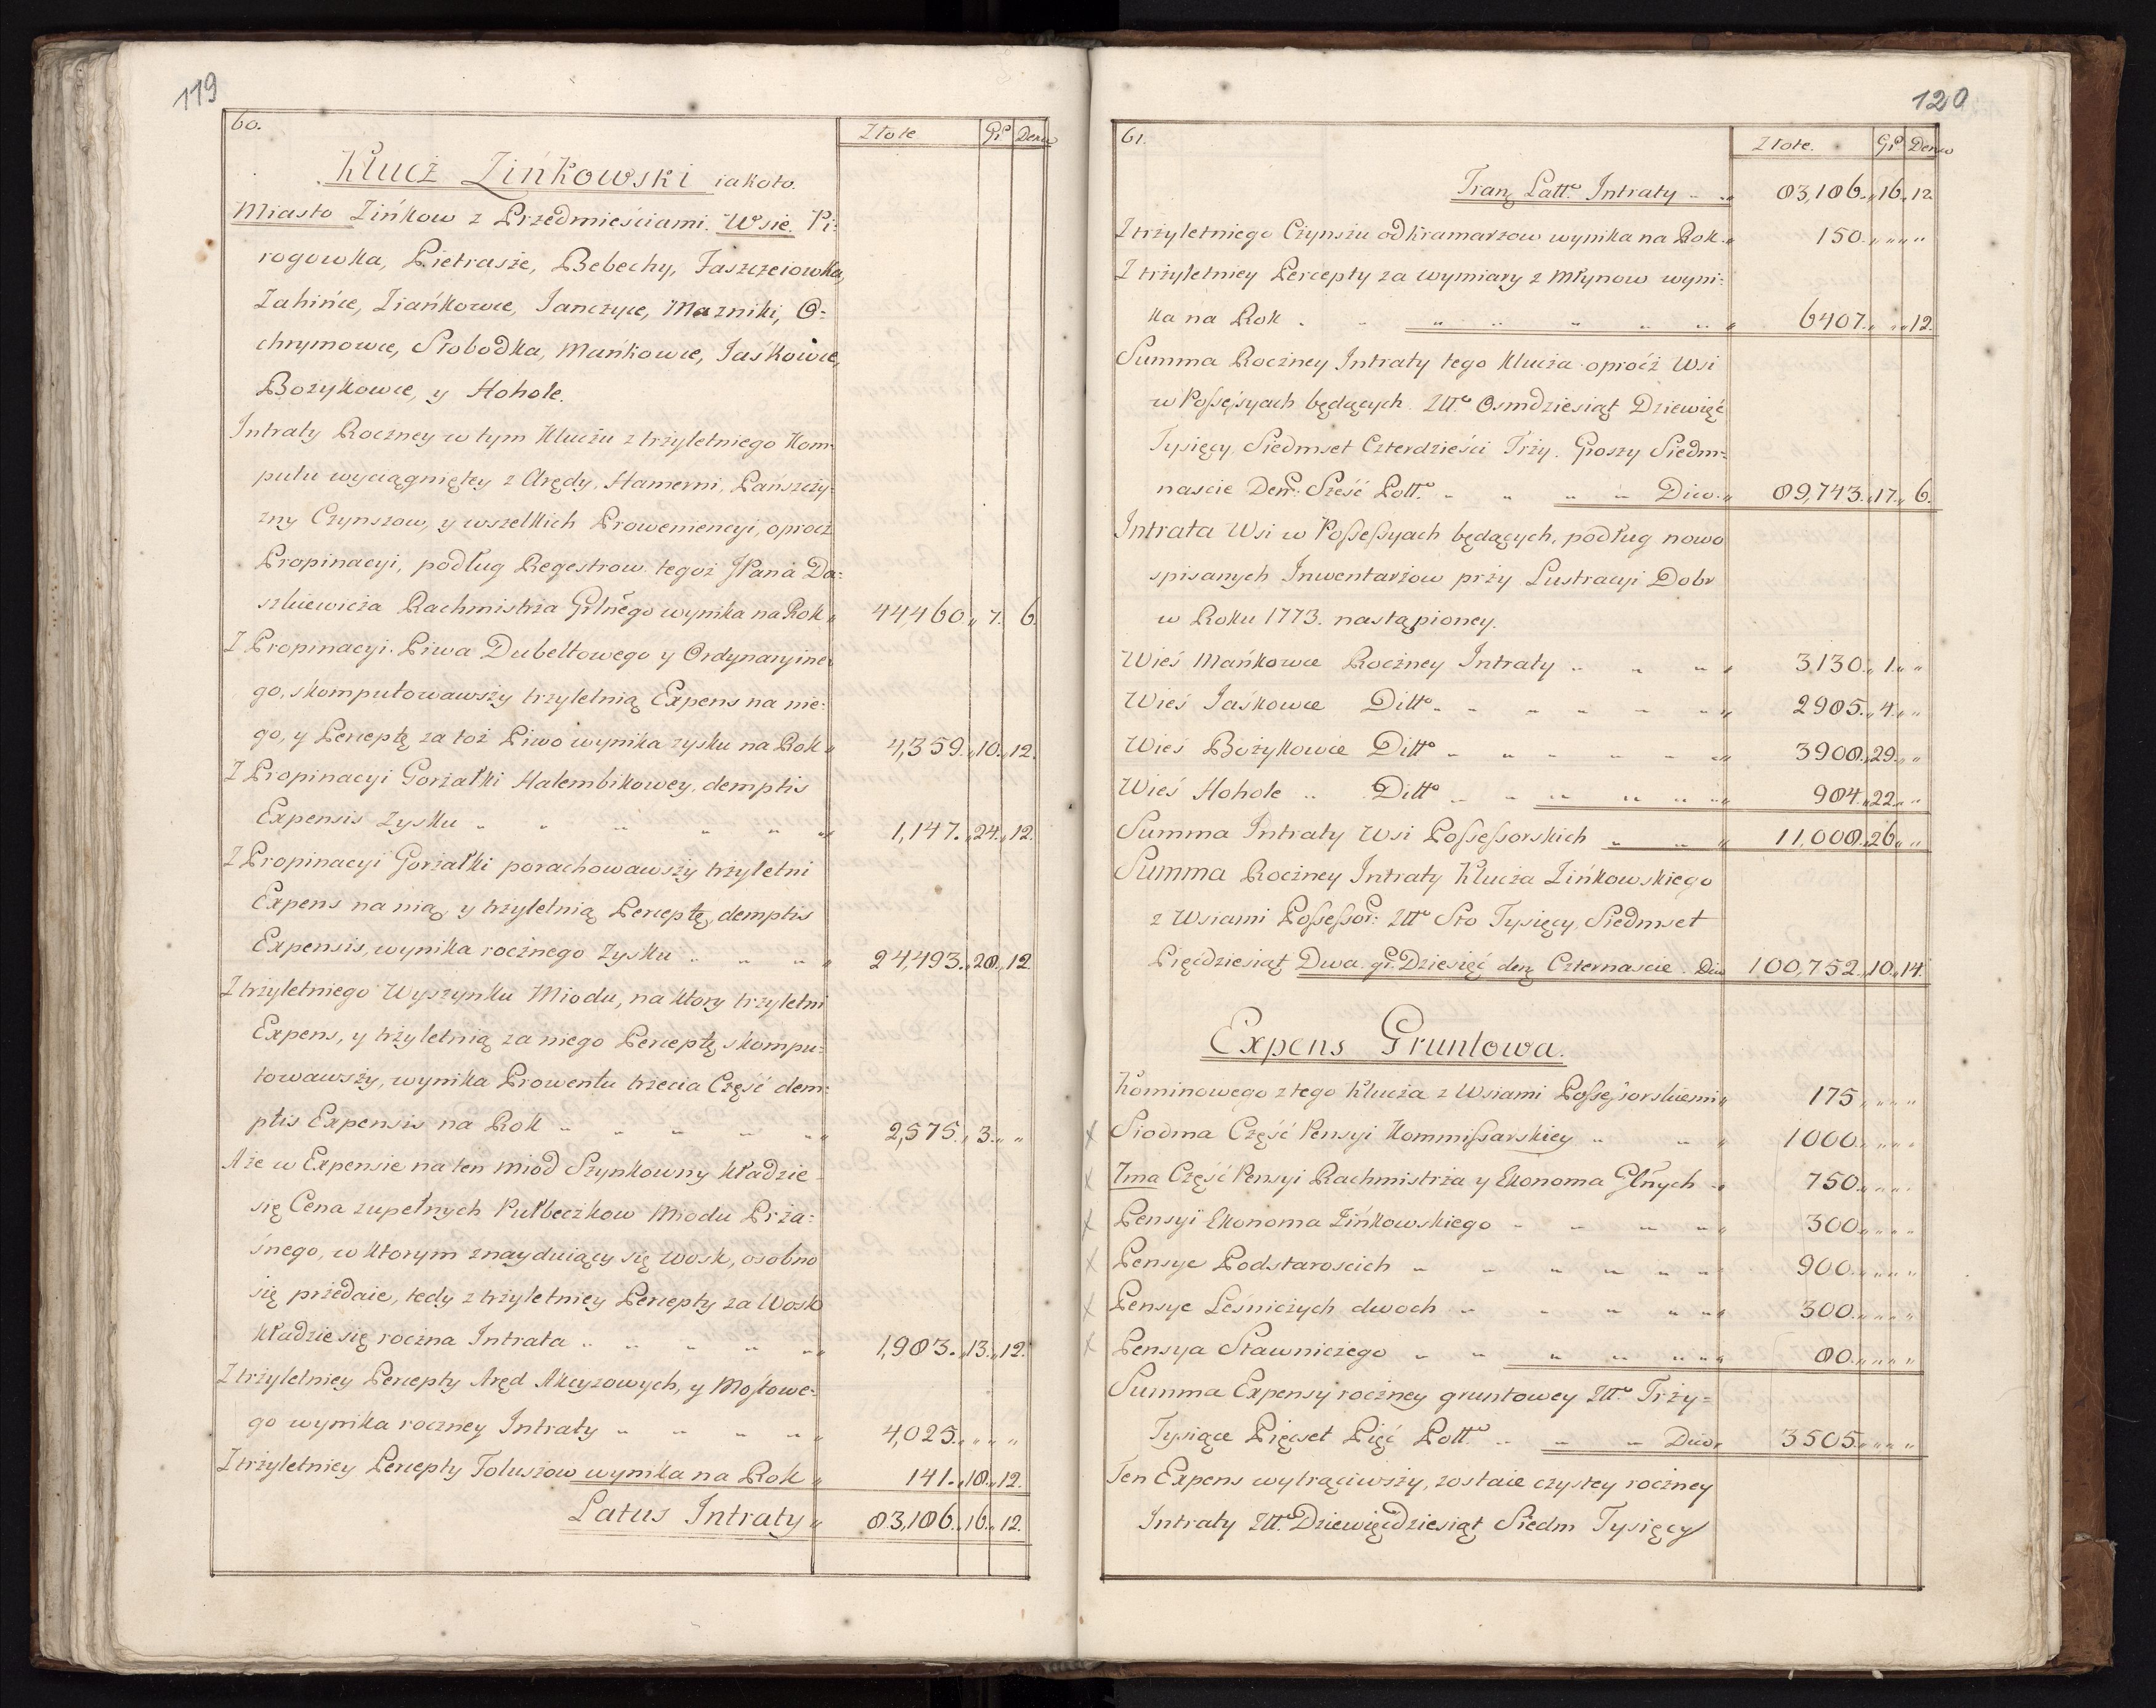 119
60.
Złote
Gr.
Denar
Klucż Zińkowski iakoto.
Miasto Zińkow z Przedmieściami. Wsie. Pi:
rogowka, Pietrasże, Bebechy, Faszczeiowka,
Zahińce, Ziańkowce, Janczyce, Mazniki, O:
chrymowce, Słobodka, Mańkowce, Jaśkowce,
Bożykowce, y Hohole.
Intraty Roczney w tym Kluczu z trzyletniego Kom:
putu wyciągniętey z Arędy, Hamerni, Pańszczy:
zny Czynszow, y wszelkich Proweniencyi, oprocz
Propinacyi, podług Regestrow tegoż JPana Da:
szkiewicża Rachmistrża Grlnego wynika na Rok „ 44,460 „ 7. 6.
Z Propinacyi Piwa Dubeltowego y Ordynaryine:
go, skomputowawszy trzyletnią Expens na nie:
go, y Perceptę za toż Piwo wynika zysku na Rok „ 4,359. „ 10. „ 12.
Z Propinacyi Gorżałki Halembikowey, demptis
Expensis Zysku „ „ „ „ „ 1,147. „ 24. „ 12.
Z Propinacyi Gorżałki porachowawszy trżyletni
Expens na nią, y trżyletnią Perceptę, demptis
Expensis, wynika rocżnego Zysku „ „ „ 24,493. „ 28. „ 12.
Z trżyletniego Wyszynku Miodu, na ktory trżyletni
Expens, y trżyletnią za niego Perceptę skompu:
towawszy, wynika Prowentu trzecia Część dem:
ptis Expensis na Rok „ „ „ „ „ 2,575. „ 3. „ „
A że w Expensie na ten miód Szynkowny kładzie
się Cena zupełnych Pułbeczkow Miodu Prża:
śnego, w ktorym znayduiący się wosk, osobno
się przedaie, tedy z trżyletniey Percepty za Wosk
kładzie się rocżna Intrata „ „ „ „ 1,983. „ 13. „ 12.
Z trżyletniey Percepty Aręd Akcyzowych, y Mostowe:
go wynika roczney Intraty „ „ „ „ 4,025. „ „ „ „
Z trżyletniey Percepty Toluszow wynika na Rok „ 141. „ 18. „ 12.
Latus Intraty „ 83,186. „ 16. „ 12.
120
61.
Złote.
Gr.
Denar
Tranz Latt. Intraty „ „ 83,186. „ 16. „ 12
Z trżyletniego Cżynszu od kramarzow wynika na Rok „ 150. „ „ „ „
Z trżyletniey Percepty za wymiary z Młynow wyni:
ka na Rok „ „ „ „ „ „ „ 6407. „ „ „ 12.
Summa Rocżney Intraty tego klucża oprocż Wsi
w Possessyach będących. Złt. Osmdziesiąt Dziewięć
Tysięcy, Siedmset Czterdzieści Trży. Groszy Siedm:
nascie Den: Sześć Poltt. „ „ „ „ Dico „ 89,743. „ 17. „ 6.
Intrata Wsi w Possessyach będących, podług nowo
spisanych Inwentarżow prży Lustracyi Dobr
w Roku 1773. nastąpioney.
Wieś Mańkowce Rocżney Intraty „ „ „ „ 3130. „ 1. „ „
Wieś Jaśkowce Ditto „ „ „ „ „ „ 2985. „ 4. „ „
Wieś Bożykowce Ditto „ „ „ „ „ „ 3908. „ 29. „ „
Wieś Hohole „ Ditto „ „ „ „ „ „ 984. „ 22. „ „
Summa Intraty Wsi Possessorskich „ „ „ 11,008. „ 26. „ „
Summa Rocżney Intraty Klucża Zińkowskiego
z Wsiami Possessor: Złt. Sto Tysięcy, Siedmset
Pięćdziesiąt Dwa. gr. Dziesięć den. Czternascie. Dico 100,752. „ 10. „ 14.
Expens Gruntowa.
Kominowego z tego klucża z Wsiami Possessorskiemi „ 175 „ „ „ „
x Siodma Część Pensyi Kommissarskiey „ „ „ 1000. „ „ „ „
x 7ma Część Pensyi Rachmistrża y Ekonoma Glnych „ 750. „ „ „ „
x Pensyi Ekonoma Zińkowskiego „ „ „ „ 300. „ „ „ „
x Pensye Podstaroscich „ „ „ „ „ „ 900. „ „ „ „
x Pensye Leśnicżych dwoch „ „ „ „ „ 300. „ „ „ „
x Pensya Stawnicżego „ „ „ „ „ „ 80. „ „ „ „
Summa Expensy rocżney gruntowey Złt. Trży:
Tysiące Pięćset Pięć Poltt. „ „ „ Dico 3505. „ „ „ „
Ten Expens wytrąciwszy, zostaie czystey rocżney
Intraty Złt. Dziewięćdziesiąt Siedm Tysięcy